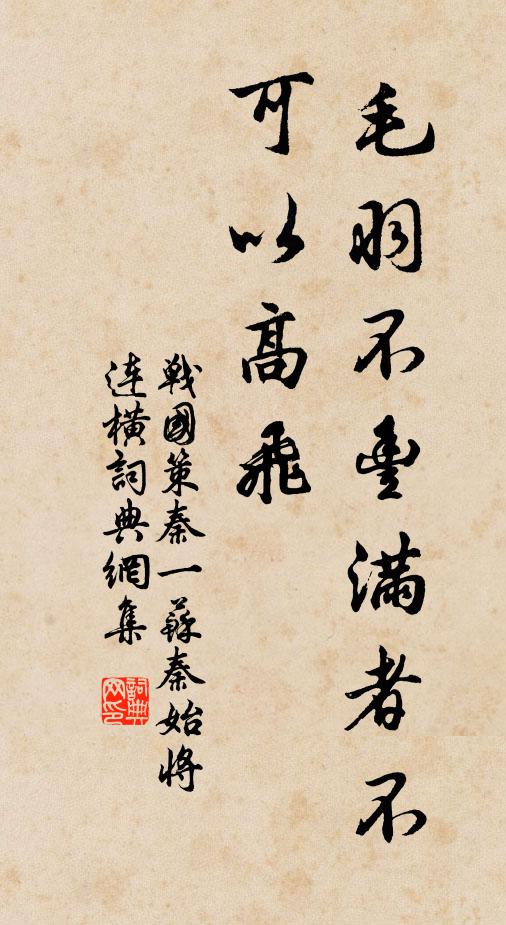 毛羽不豐滿者不
可以高飛
戰國策秦一蘇秦始將
連橫詞典網集
詞典
网印